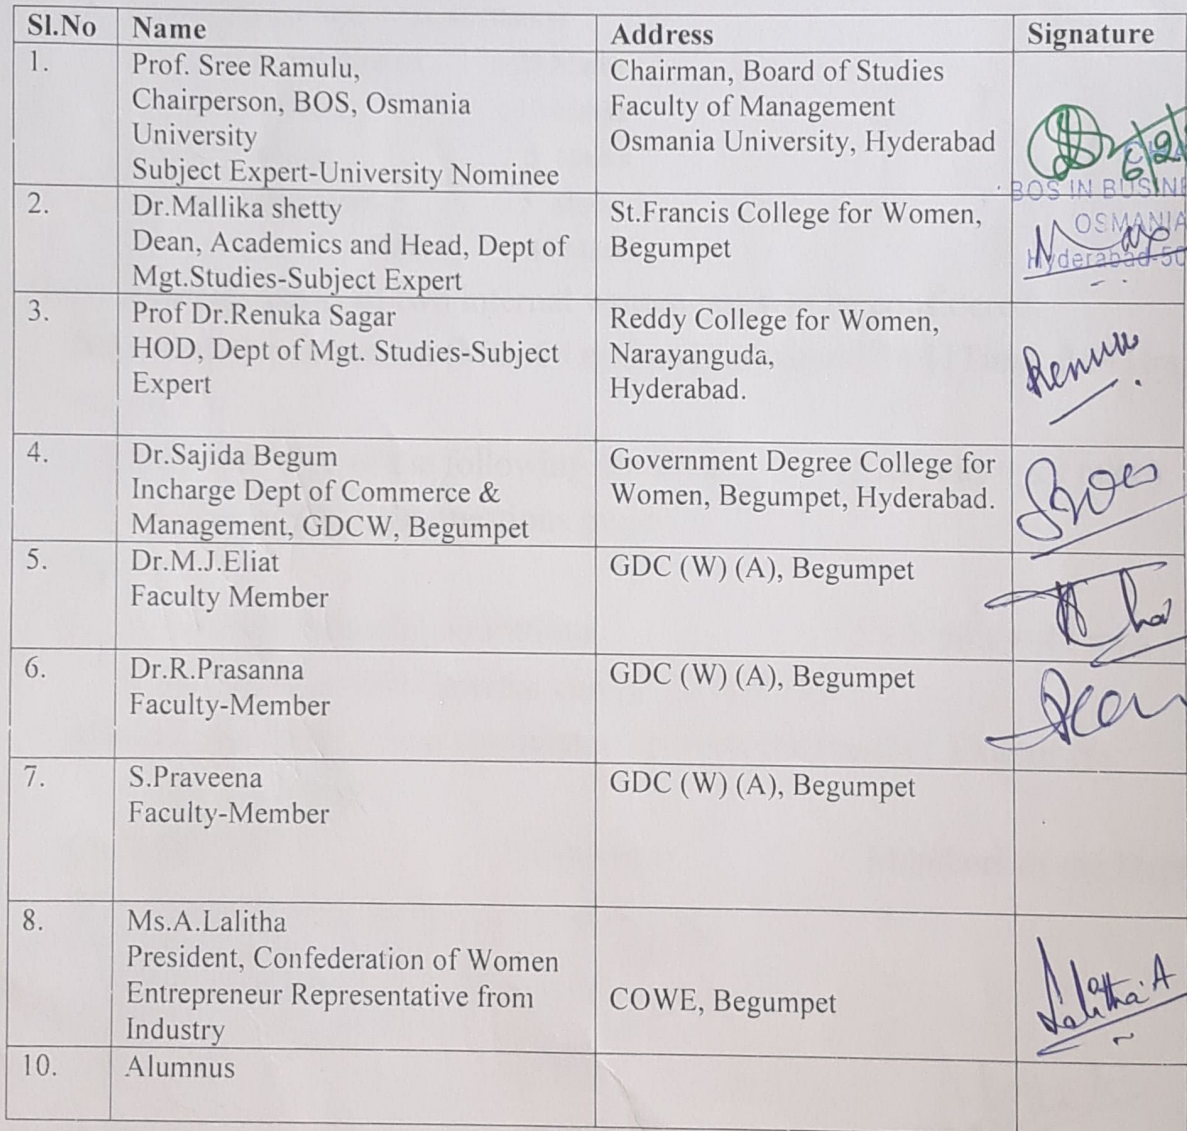 Sl.No Name Address Signature
1. Prof. Sree Ramulu,
Chairperson, BOS, Osmania
University
Subject Expert-University Nominee
Chairman, Board of Studies
Faculty of Management
Osmania University, Hyderabad
6/2/
CHA
BOS IN BUSINE
OSMANIA
Hyderabad-50
2. Dr.Mallika shetty
Dean, Academics and Head, Dept of
Mgt.Studies-Subject Expert
St.Francis College for Women,
Begumpet
3. Prof Dr.Renuka Sagar
HOD, Dept of Mgt. Studies-Subject
Expert
Reddy College for Women,
Narayanguda,
Hyderabad.
4. Dr.Sajida Begum
Incharge Dept of Commerce &
Management, GDCW, Begumpet
Government Degree College for
Women, Begumpet, Hyderabad.
5. Dr.M.J.Eliat
Faculty Member
GDC (W) (A), Begumpet
6. Dr.R.Prasanna
Faculty-Member
GDC (W) (A), Begumpet
7. S.Praveena
Faculty-Member
GDC (W) (A), Begumpet
8. Ms.A.Lalitha
President, Confederation of Women
Entrepreneur Representative from
Industry
COWE, Begumpet
Lalitha A
10. Alumnus